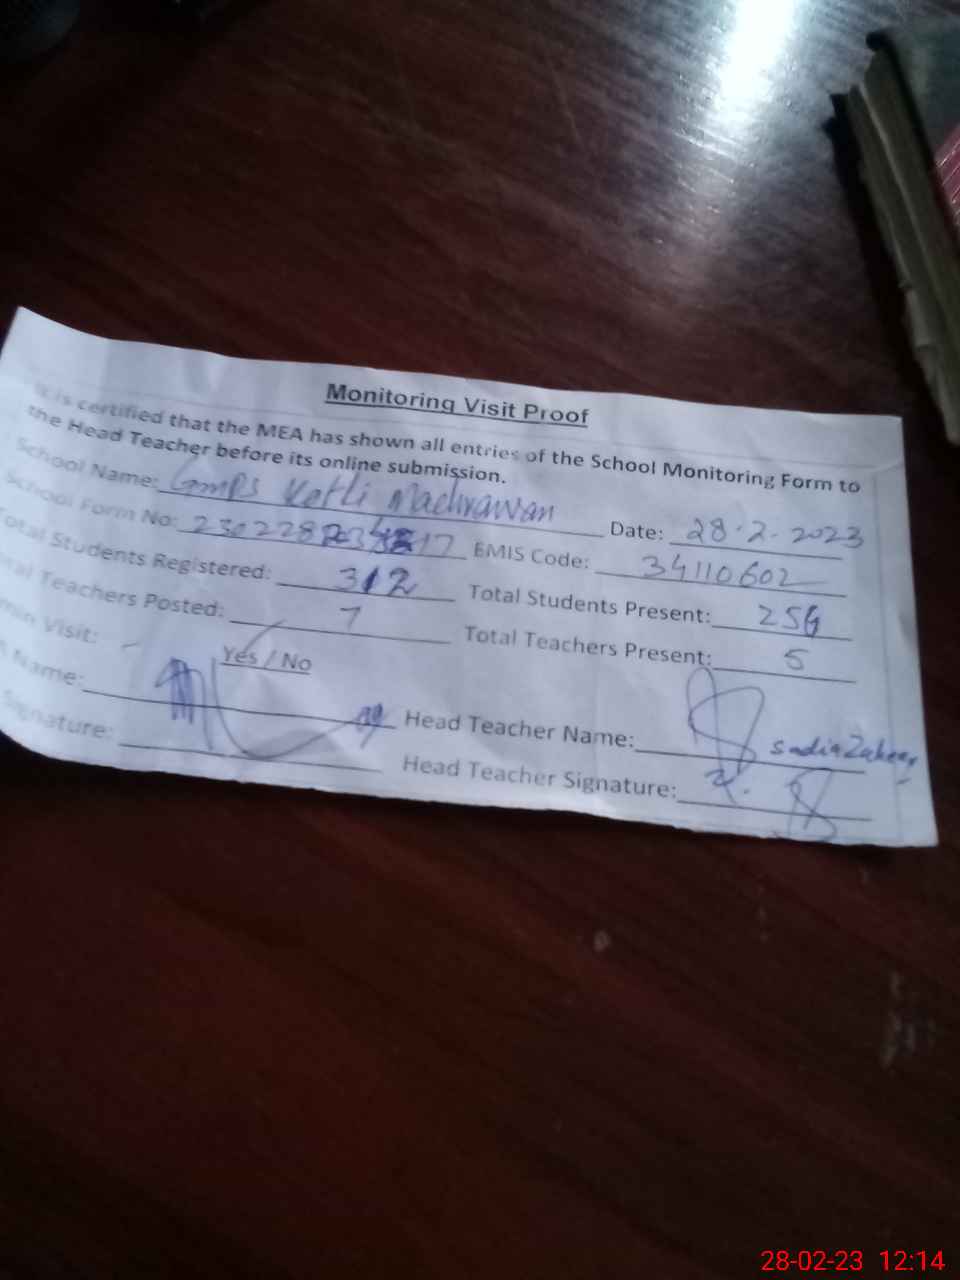 Monitoring Visit Proof
It is certified that the MEA has shown all entries of the School Monitoring Form to
the Head Teacher before its online submission.
School Name: Gmps Kotli Date: 28.2.2023
School Form No: EMIS Code: 34110602
Total Students Registered: 312 Total Students Present: 256
Total Teachers Posted: 7 Total Teachers Present: 5
min Visit: Yes / No
Name: Head Teacher Name: Sadia Zaheer
Signature: Head Teacher Signature:
28-02-23 12:14